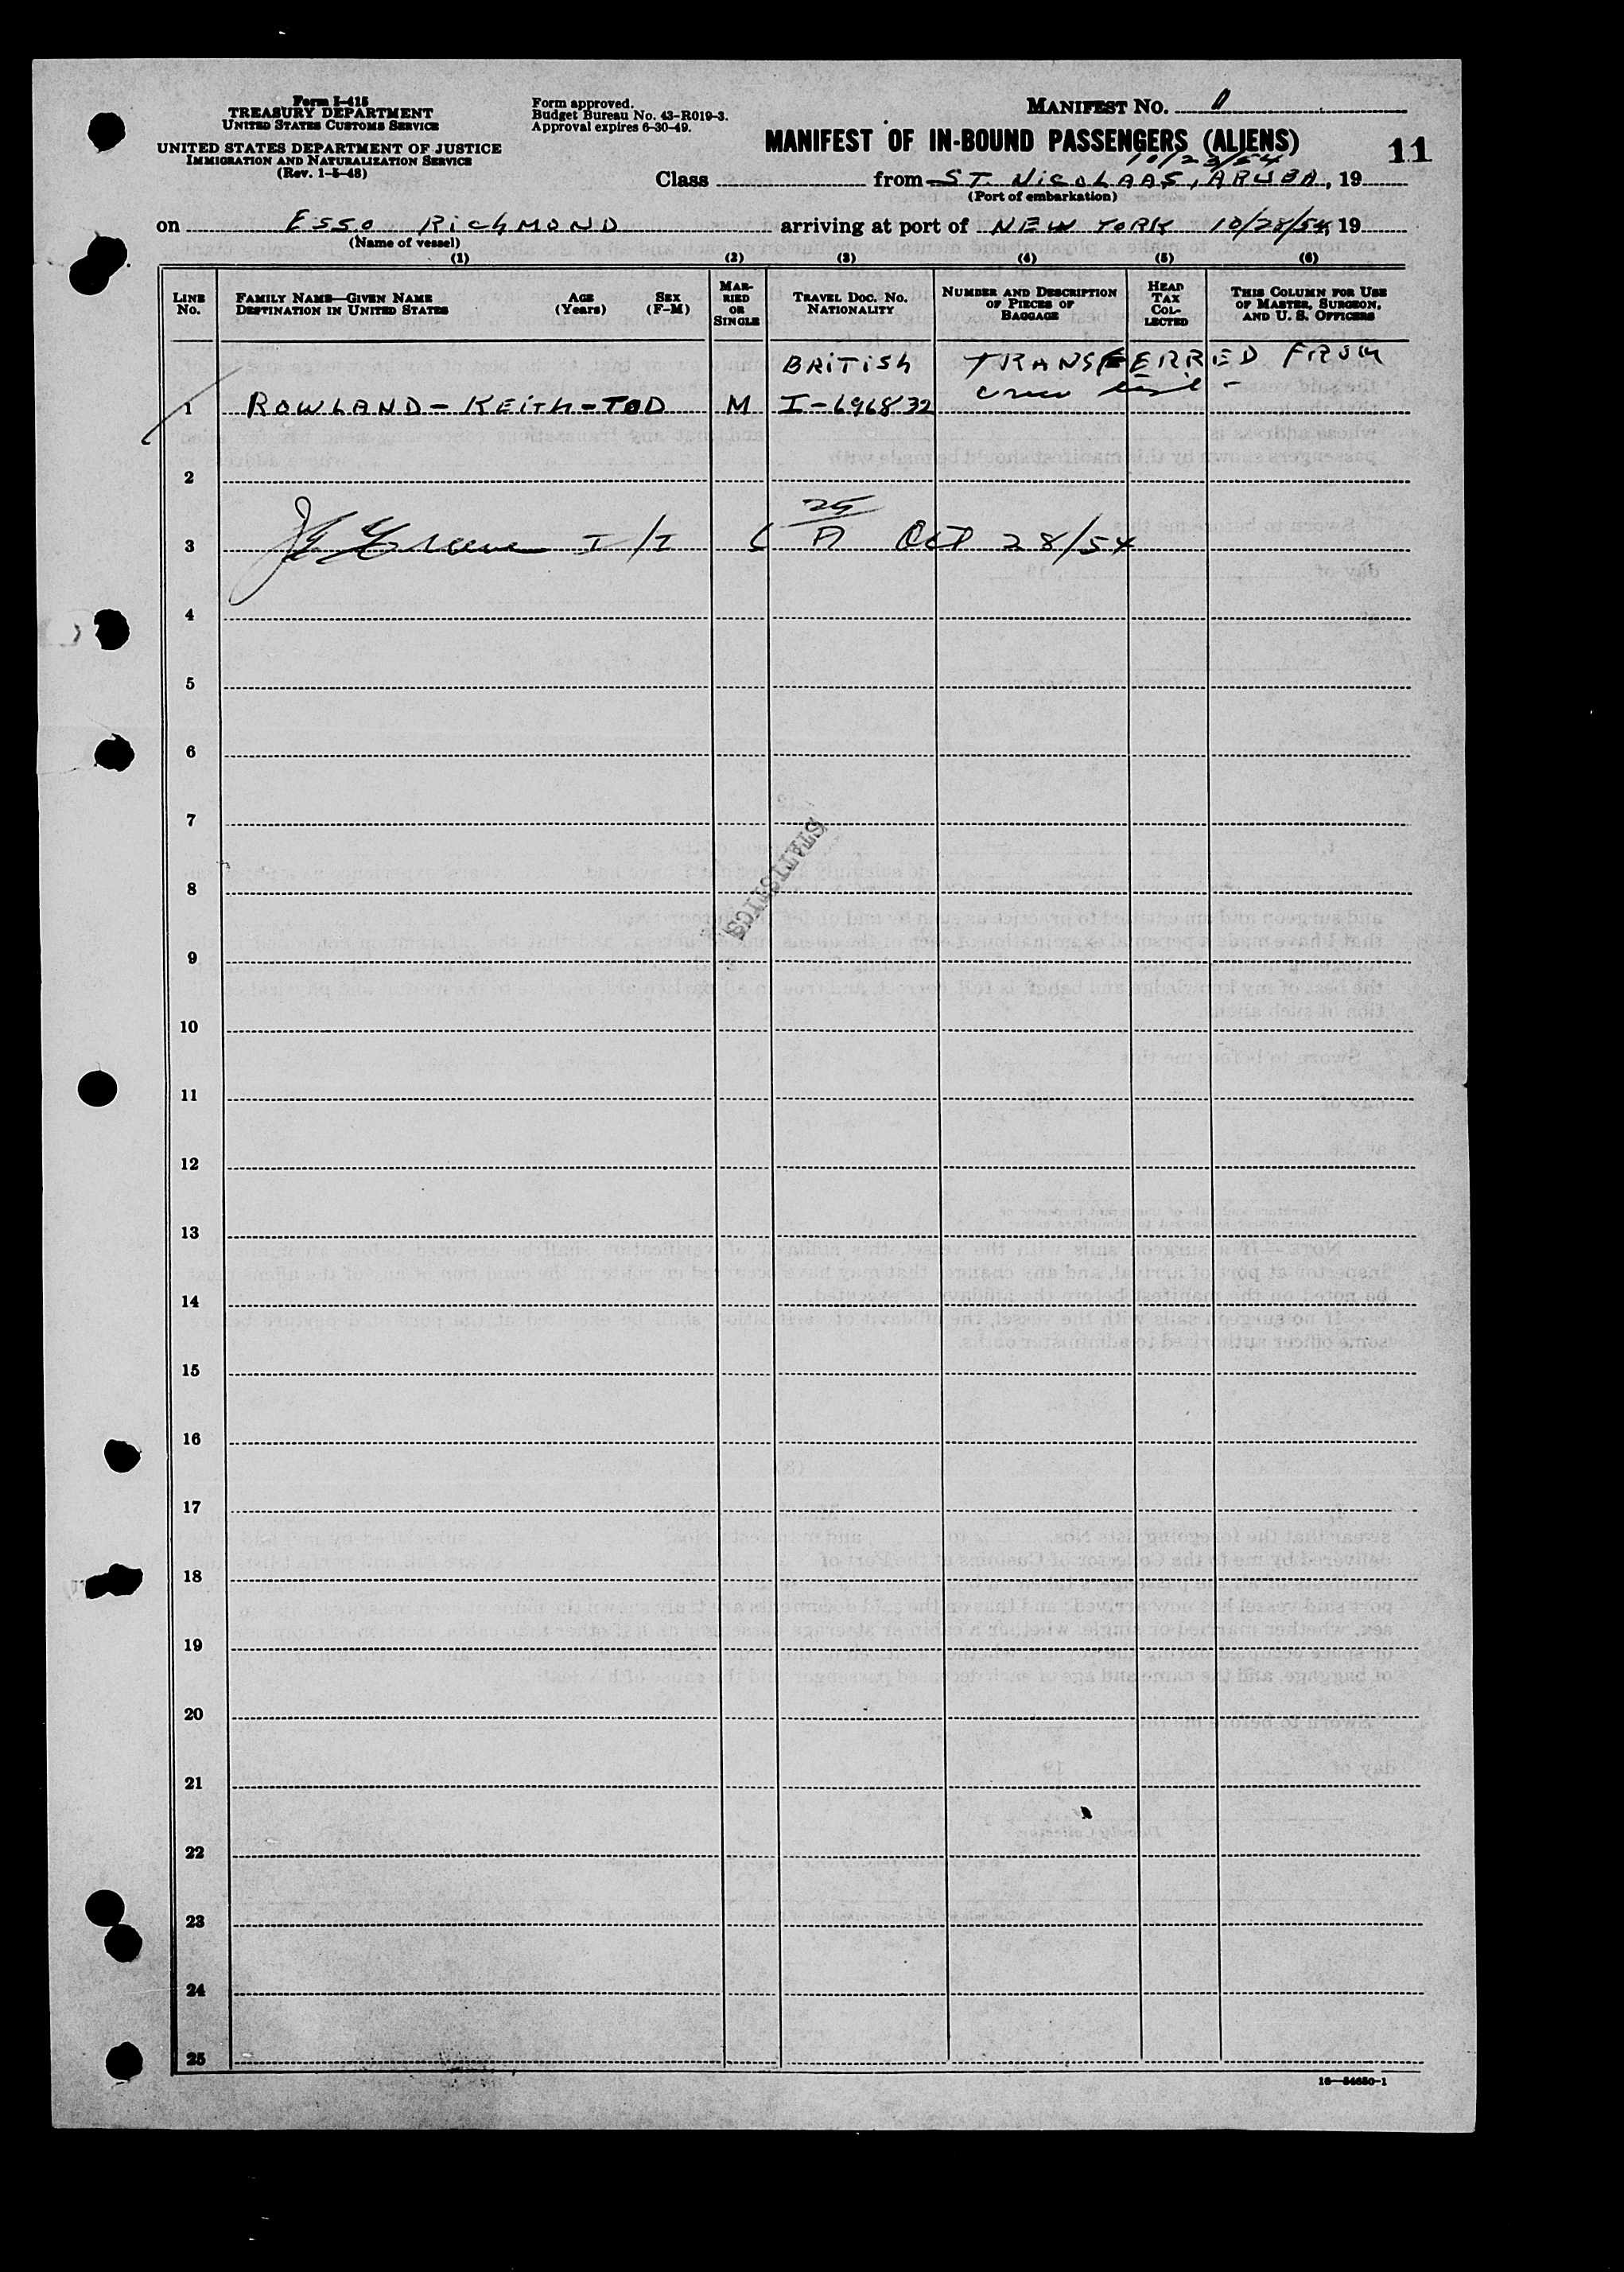 Form I-415
TREASURY DEPARTMENT
UNITED STATES CUSTOMS SERVICE
UNITED STATES DEPARTMENT OF JUSTICE
IMMIGRATION AND NATURALIZATION SERVICE
(Rev. 1-5-48)
Form approved.
Budget Bureau No. 43-R019-3.
Approval expires 6-30-49.
MANIFEST NO.
MANIFEST OF IN-BOUND PASSENGERS (ALIENS)
11
10/23/54
Class from ST. NICOLAAS, ARUBA, 19
(Port of embarkation)
on ESSO RICHMOND arriving at port of NEW YORK 10/28/54 19
(Name of vessel)
(1) (2) (3) (4) (5) (6)
LINE NO.
FAMILY NAME—GIVEN NAME
DESTINATION IN UNITED STATES
AGE (Years)
SEX (F-M)
MARRIED OR SINGLE
TRAVEL DOC. NO.
NATIONALITY
NUMBER AND DESCRIPTION
OF PIECES OF
BAGGAGE
HEAD
TAX
COL-
LECTED
THIS COLUMN FOR USE
OF MASTER, SURGEON,
AND U. S. OFFICERS
BRITISH TRANSFERRED FROM
crew list -
1 ROWLAND - KEITH - TOD M I-696832
2
25
3 Greene I/I A Oct 28/54
4
5
6
7
STATISTICS
8
9
10
11
12
13
14
15
16
17
18
19
20
21
22
23
24
25
16—54650-1